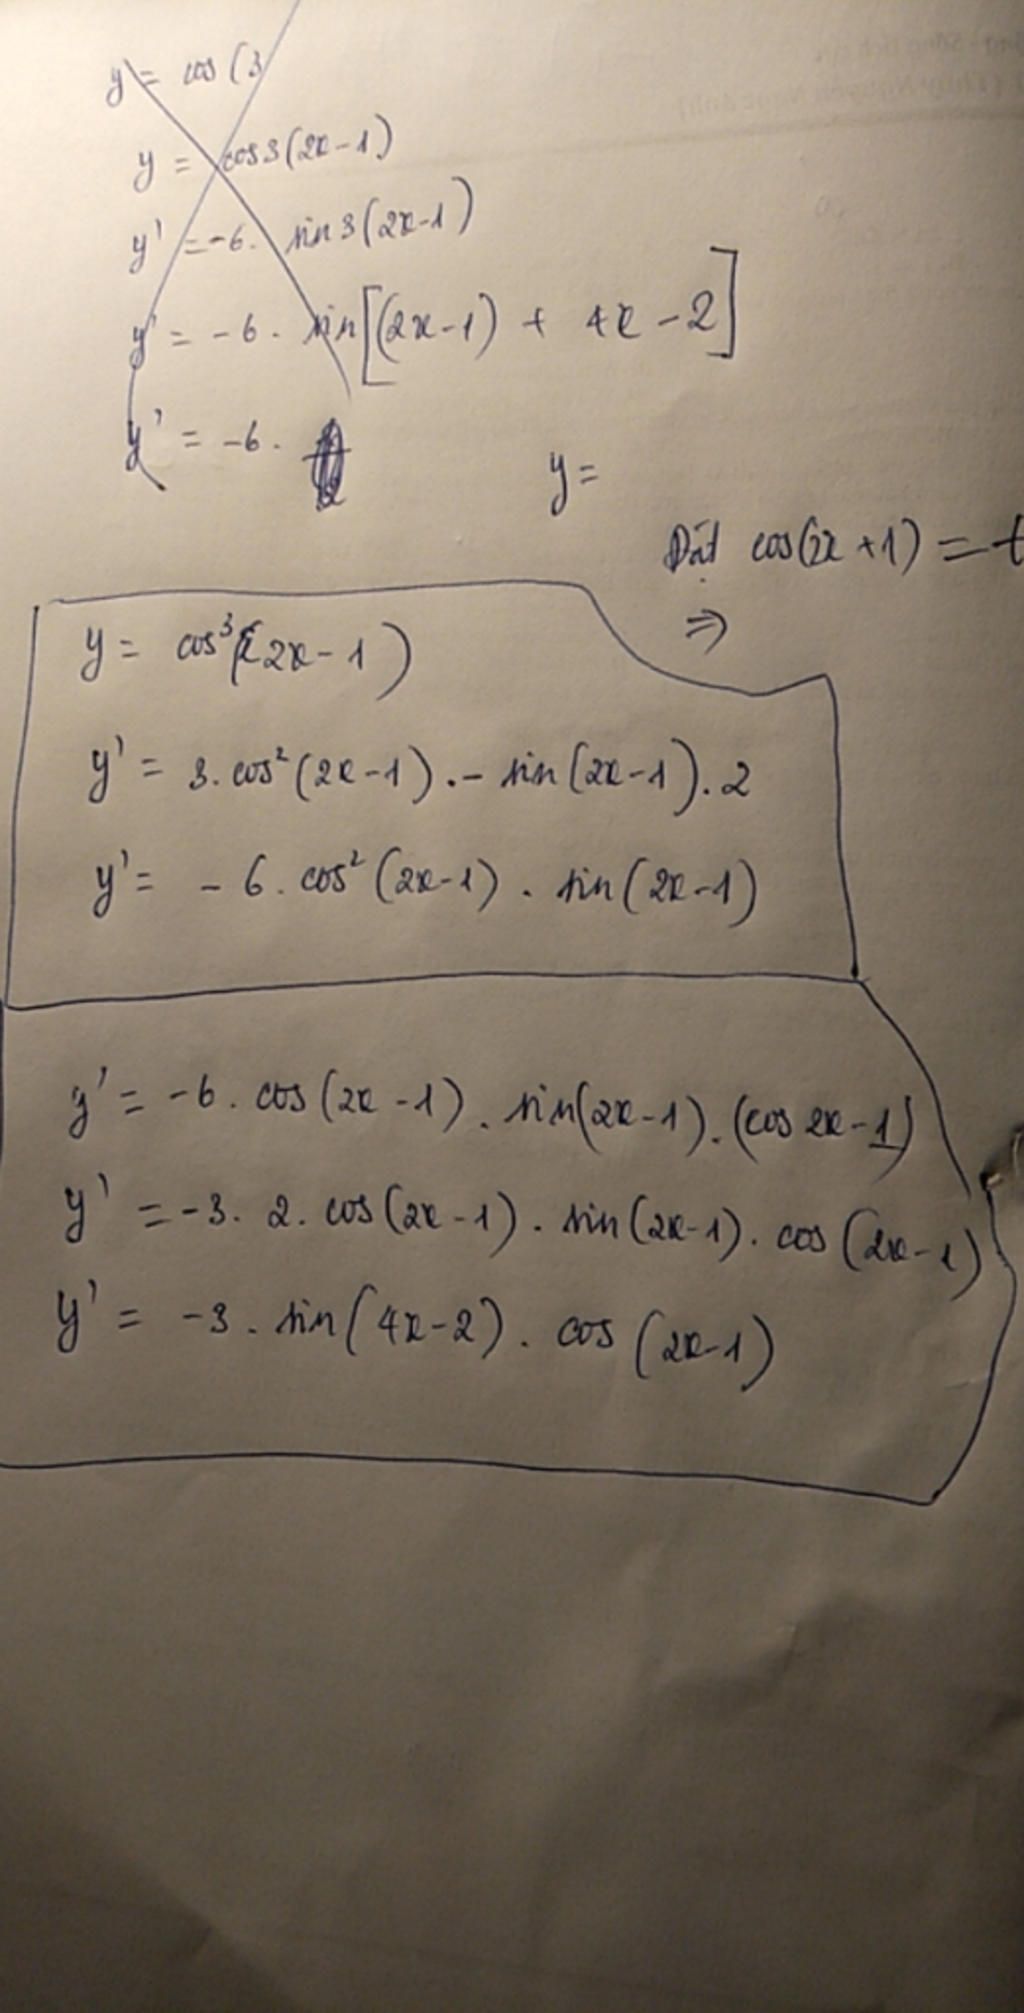 y = cos (3
y = cos3(2x-1)
y' = -6. sin3(2x-1)
y' = -6. sin[(2x-1) + 4x-2]
y' = -6.
y=
Đặt cos(2x+1) = t
⇒
y = cos³(2x-1)
y' = 3.cos²(2x-1).-sin(2x-1).2
y' = -6.cos²(2x-1).sin(2x-1)
y' = -6.cos(2x-1).sin(2x-1).(cos 2x-1)
y' = -3.2.cos(2x-1).sin(2x-1).cos(2x-1)
y' = -3.sin(4x-2).cos(2x-1)